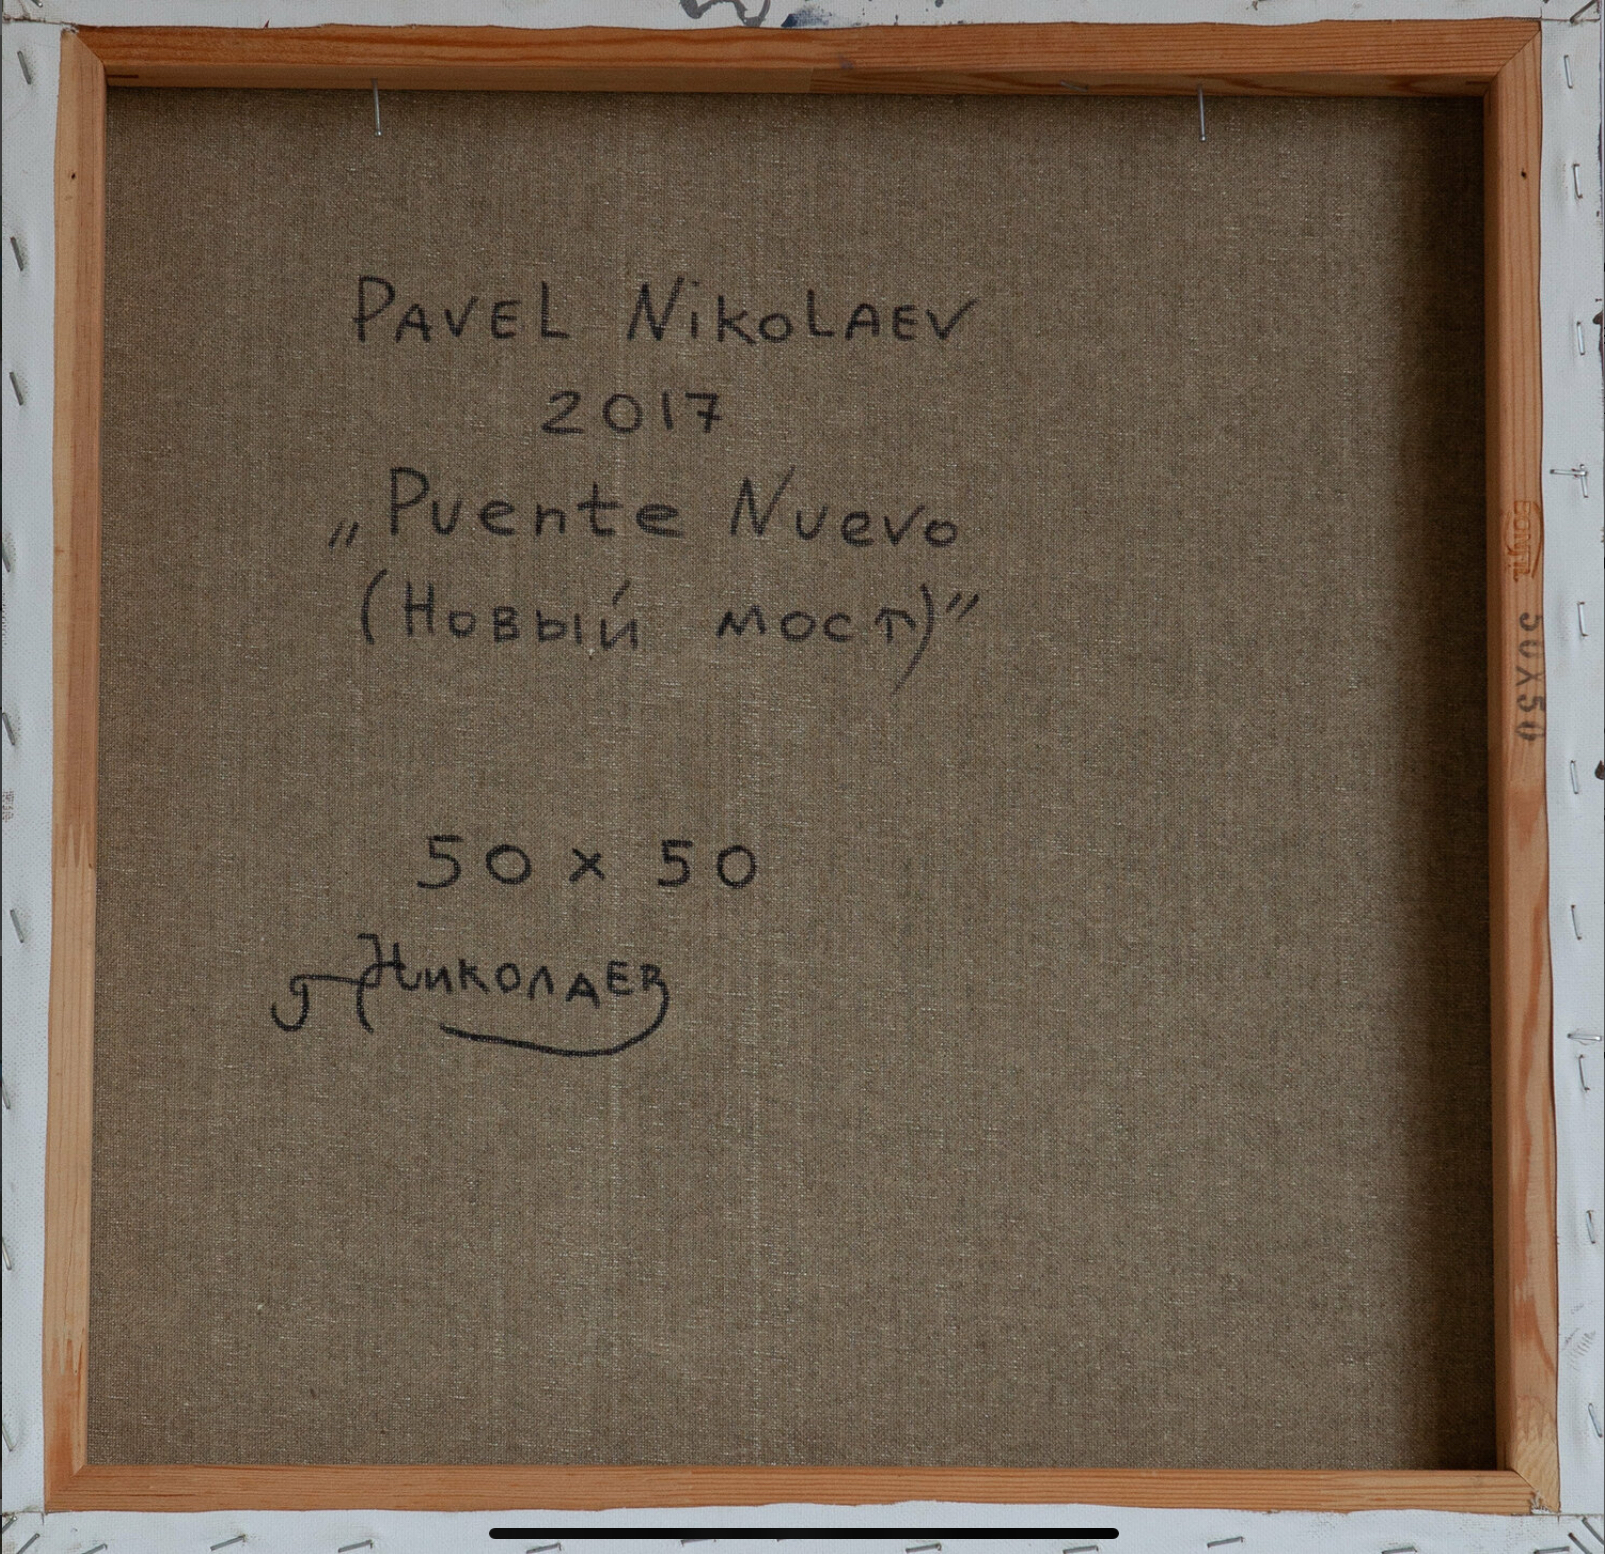 PAVEL NikoLAEV
2017
„Puente Nuevo
(Новый мост)”
50 x 50
П Николаев
50X50